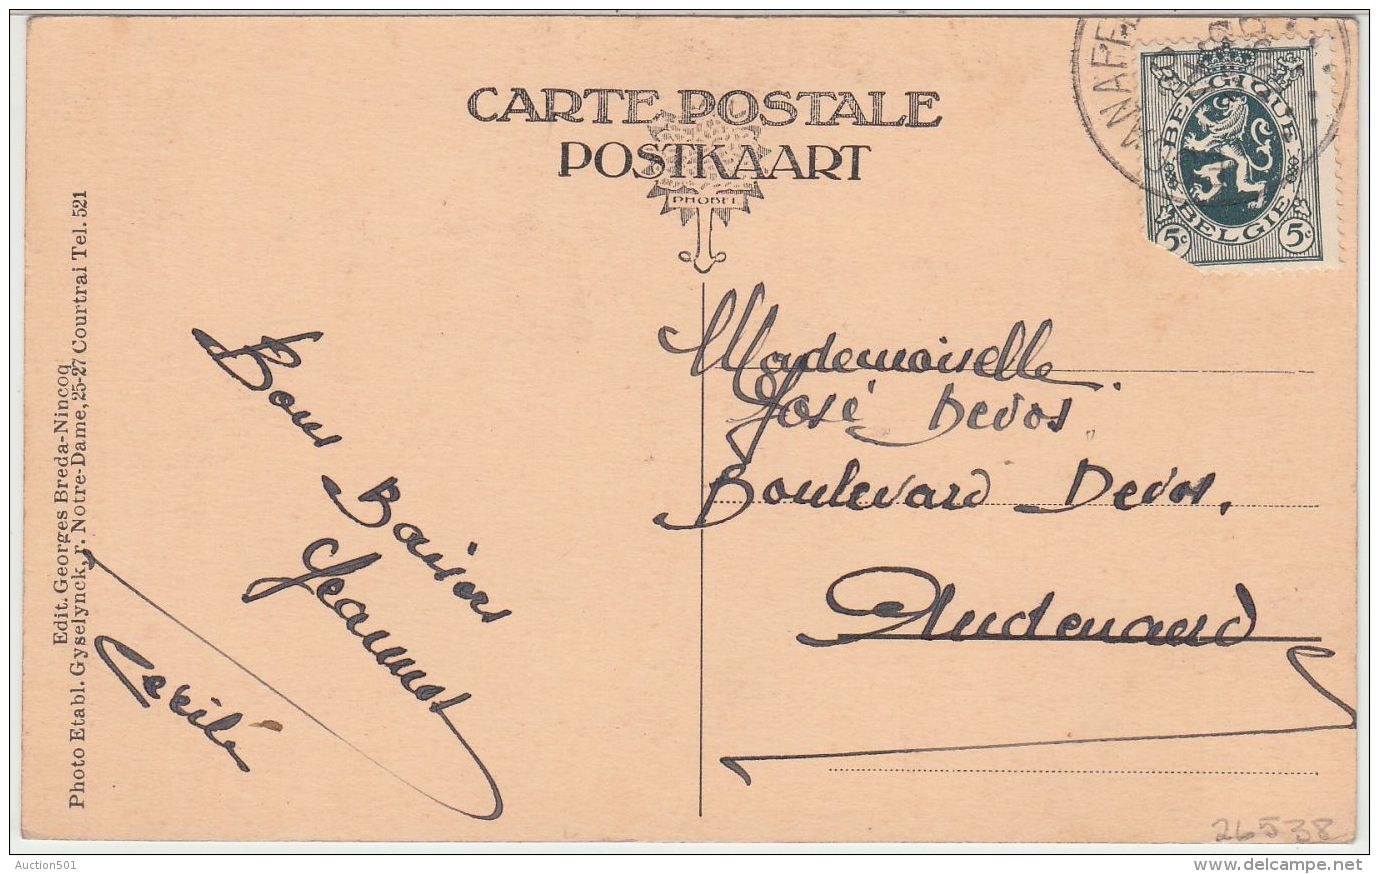 CARTE POSTALE
POSTKAART
PHOBEL
BELGIQUE
BELGIE
5c 5c
Edit. Georges Breda-Nincoq
Photo Etabl. Gyselynck, r. Notre-Dame, 25-27 Courtrai Tel. 521
Bons Baisers
Jeannot
Cecile
Mademoiselle
José Devos.
Boulevard Devos.
Audenaerd
26538
Auction501
delcampe.net